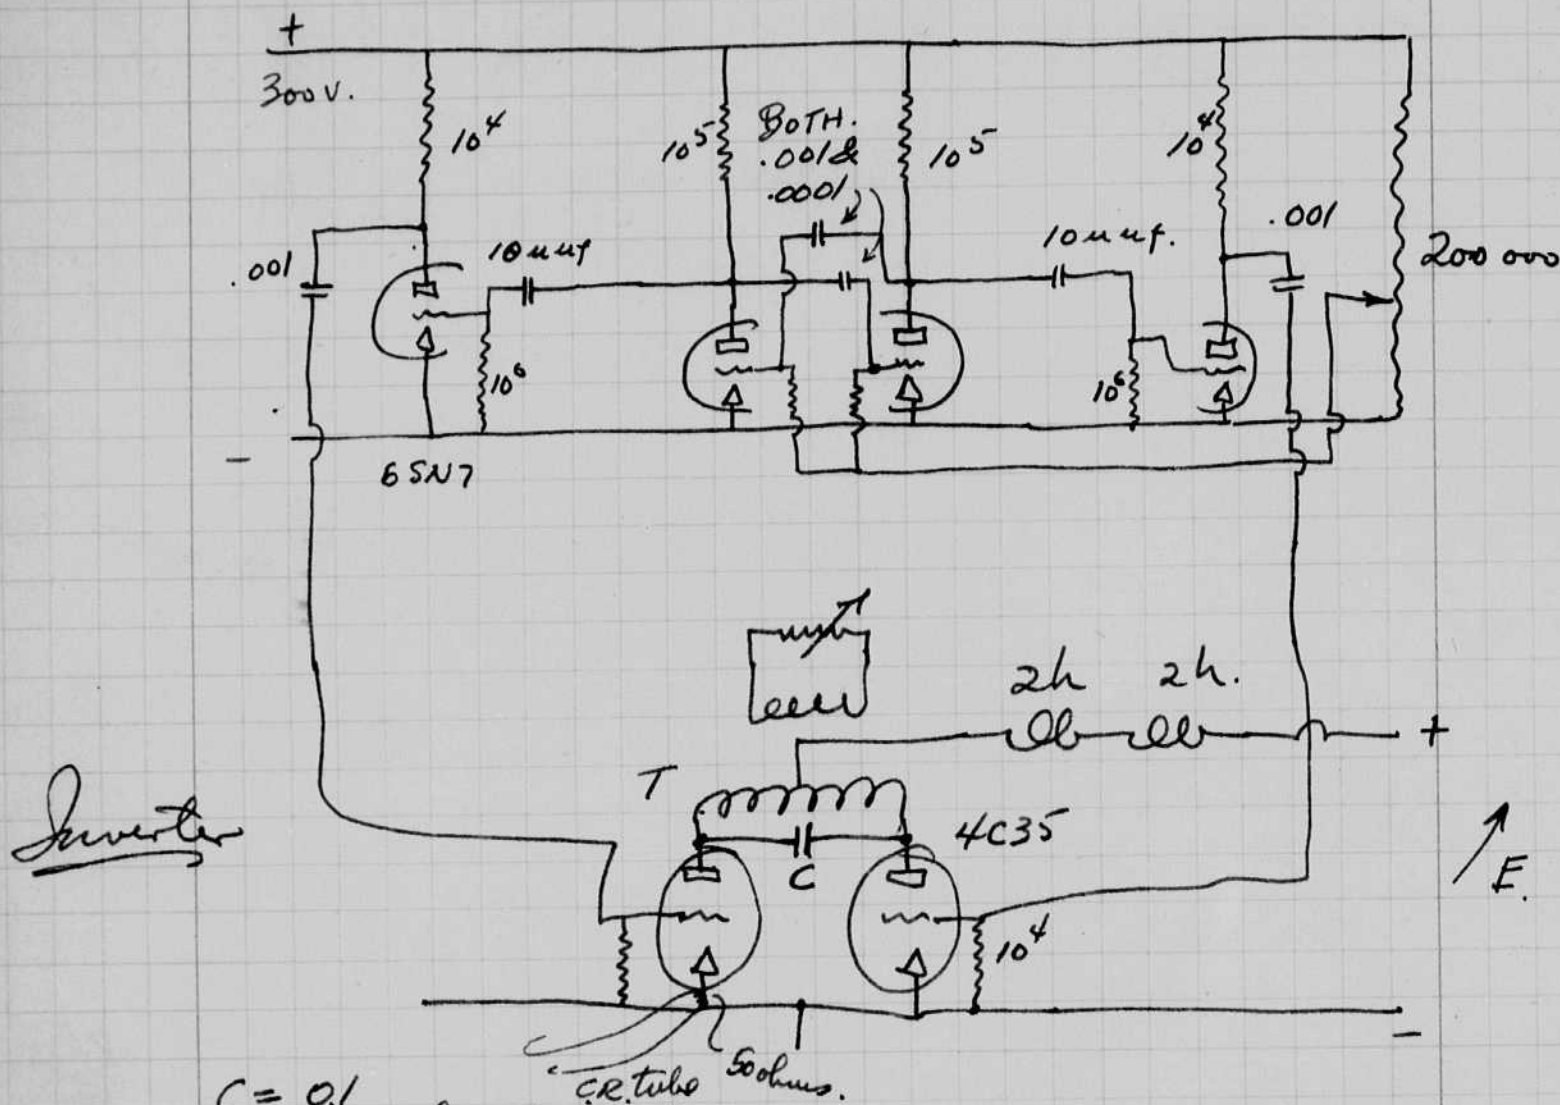 +
300 v.
10⁴
10⁵
BOTH.
.001 &
.0001
10⁵
10⁴
.001
200 000
.001
10 µµf
10 µµf.
10⁶
10⁶
-
6SN7
2h 2h.
+
T
4C35
C
Inverter
E.
10⁴
-
C.R. tube 50 ohms.
C = 0.1